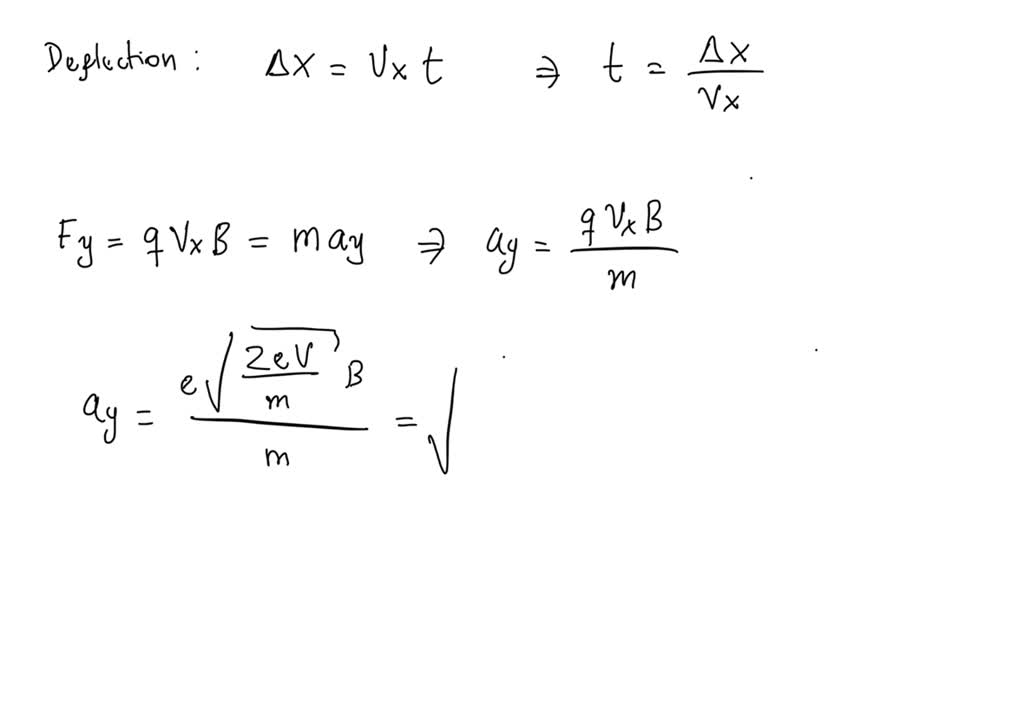 Deflection : Δx = Vx t ⇒ t = Δx / Vx
Fy = q Vx B = m ay ⇒ ay = q Vx B / m
ay = e √(2eV / m) B / m = √